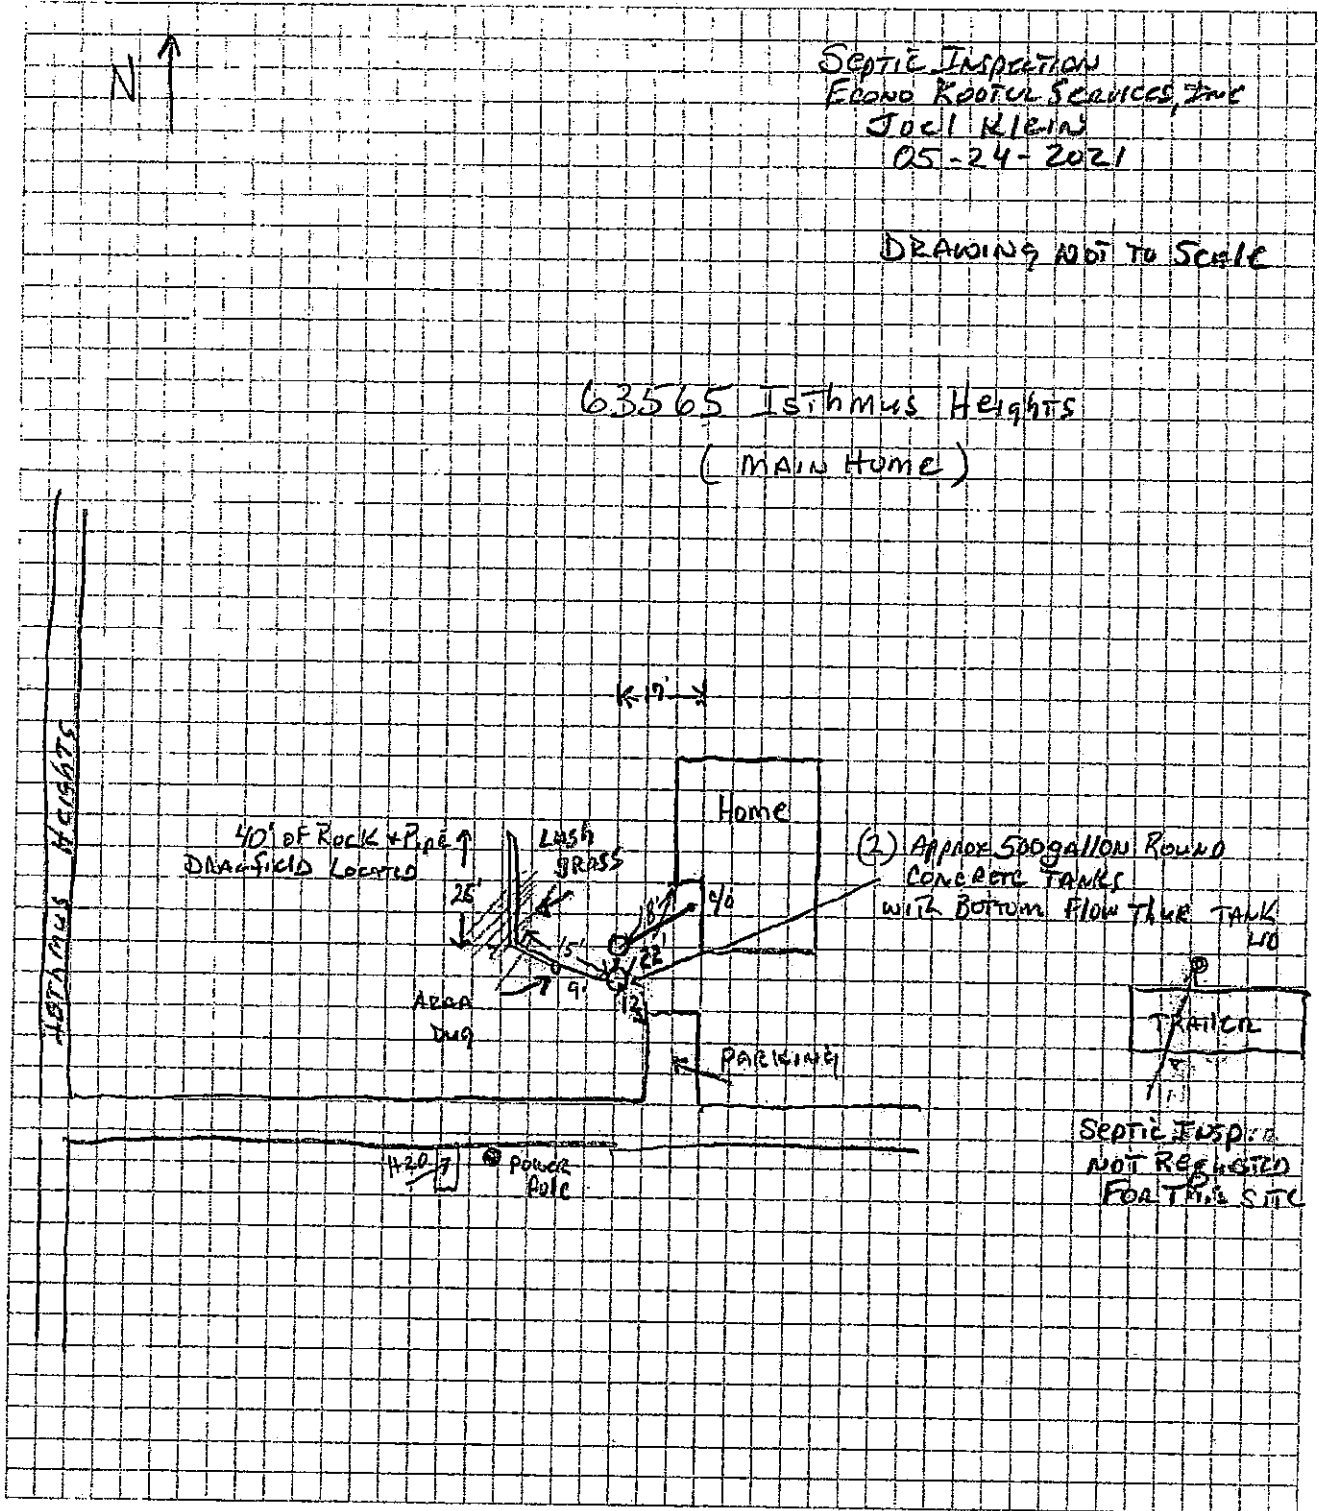 N
Septic Inspection
Econo Rooter Services, Inc
Joel Klein
05-24-2021
DRAWING NOT TO Scale
63565 Isthmus Heights
(MAIN HOME)
17'
Home
Isthmus Heights
40' of Rock + Pipe
DRAINFIELD LOCATED
Lush
GRASS
C/O
(2) Approx 500 gallon Round
CONCRETE TANKS
with Bottom Flow Thur TANK
15'
22'
9'
12'
Area
Dug
TRAILER
PARKING
H20
POWER
Pole
Septic Insp
NOT Requested
FOR This SITE